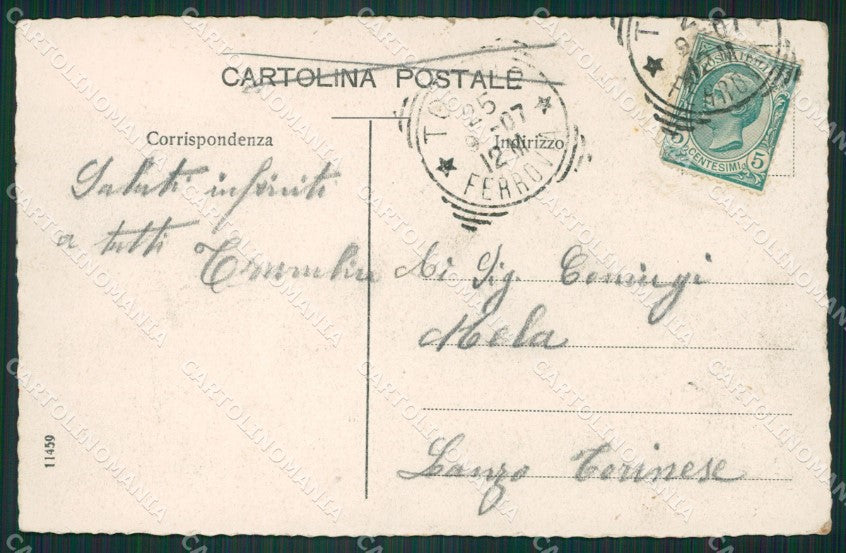 CARTOLINA POSTALE
Corrispondenza
Indirizzo
Saluti infiniti
a tutti
Ai Sig. Coniugi
Mela
Lanzo Torinese
11459
25
9-07
12M
FERROVIA
5 CENTESIMI 5
CARTOLINOMANIA